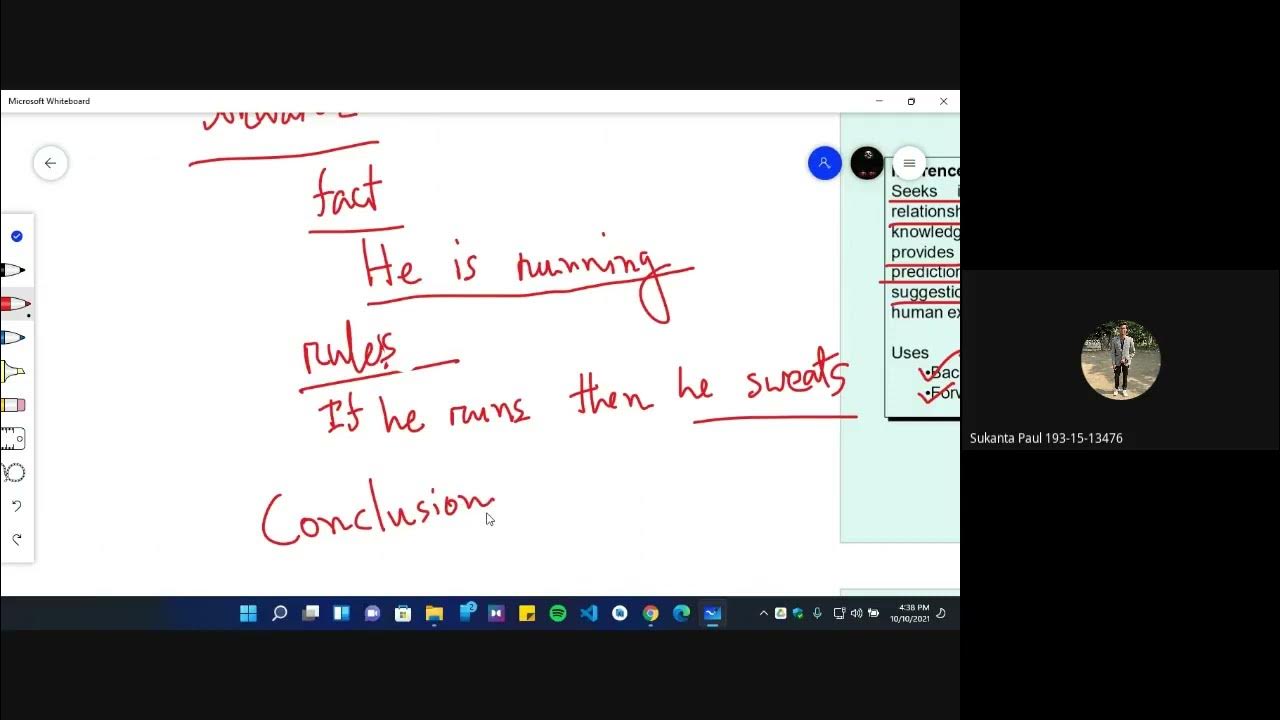 Microsoft Whiteboard
fact
He is running
rules
If he runs then he sweats
Conclusion
Seeks
relationsh
knowledg
provides
prediction
suggestio
human ex
Uses
•Bac
•Forw
Sukanta Paul 193-15-13476
2
4:38 PM
10/10/2021